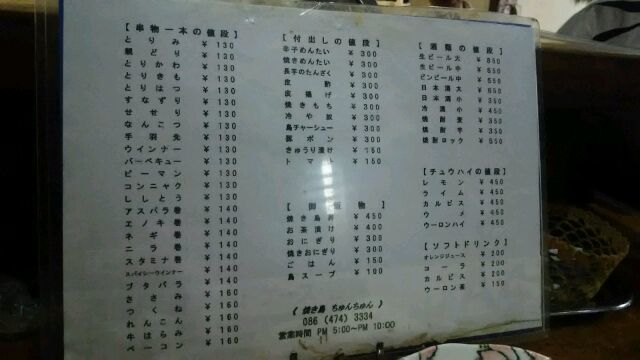 【串物一本の値段】
とりみ ￥130
親どり ￥130
とりかわ ￥130
とりきも ￥130
とりはつ ￥130
すなずり ￥130
せせり ￥130
なんこつ ￥130
手羽先 ￥130
ウインナー ￥130
バーベキュー ￥130
ピーマン ￥130
コンニャク ￥130
ししとう ￥130
アスパラ巻 ￥140
エノキ巻 ￥140
ネギ巻 ￥140
ニラ巻 ￥140
スタミナ巻 ￥140
スパイシーウインナー ￥140
ブタバラ ￥140
ささみ ￥160
つくね ￥160
れんこん ￥160
牛はらみ ￥160
ベーコン ￥160
【付出しの値段】
辛子めんたい ￥300
焼きめんたい ￥300
長芋のたんざく ￥300
皮酢 ￥300
皮揚げ ￥300
焼きもち ￥300
冷や奴 ￥300
鳥チャーシュー ￥300
豚ポン ￥300
きゅうり漬け ￥150
トマト ￥150
【御飯物】
焼き鳥丼 ￥450
お茶漬け ￥400
おにぎり ￥300
焼きおにぎり ￥300
ごはん ￥150
鳥スープ ￥100
（ 焼き鳥 ちゅんちゅん ）
086 (474) 3334
営業時間 PM 5:00～PM 10:00
【酒類の値段】
生ビール大 ￥850
生ビール中
ビンビール中
日本酒大
日本酒小 ￥350
冷酒小 ￥450
焼酎麦 ￥350
焼酎芋 ￥350
焼酎ロック ￥500
【チュウハイの値段】
レモン ￥450
ライム ￥450
カルピス ￥450
ウメ ￥450
ウーロンハイ ￥450
【ソフトドリンク】
オレンジジュース ￥200
コーラ ￥200
カルピス ￥200
ウーロン茶 ￥150